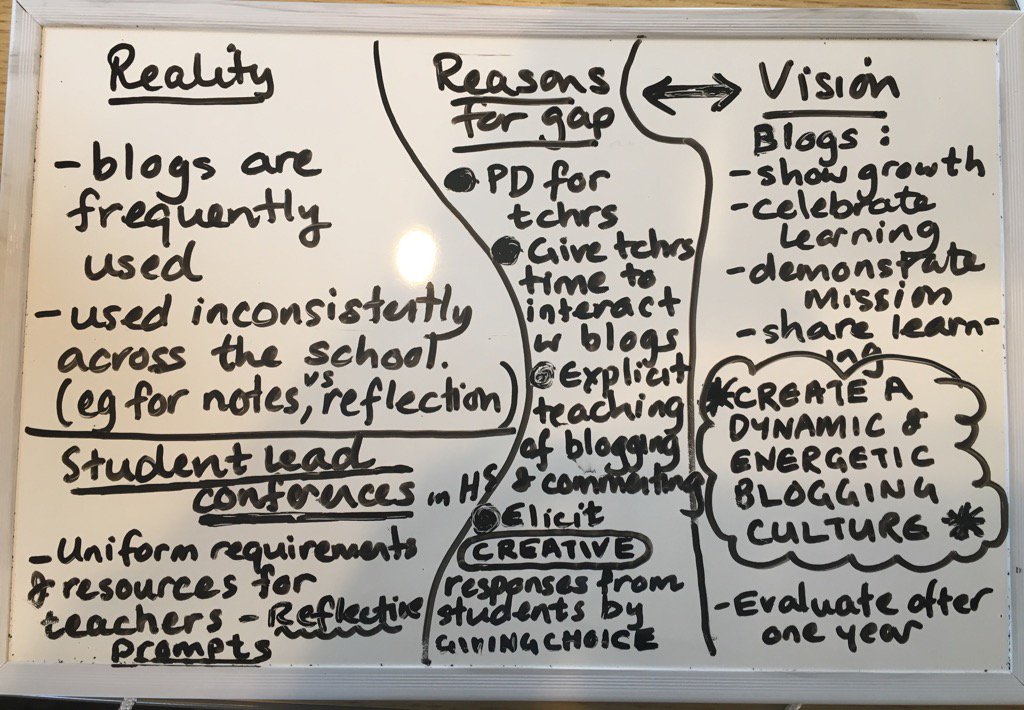 Reality
- blogs are
frequently
used
- used inconsistently
across the school.
(eg for notes, vs reflection)
Student lead
conferences in HS
- Uniform requirements
& resources for
teachers - Reflective
prompts
Reasons
for gap
PD for
tchrs
Give tchrs
time to
interact
w blogs
Explicit
teaching
of blogging
& commenting
Elicit
CREATIVE
responses from
students by
GIVING CHOICE
Vision
Blogs :
- show growth
- celebrate
learning
- demonstrate
mission
- share learn-
ing
*CREATE A
DYNAMIC &
ENERGETIC
BLOGGING
CULTURE *
- Evaluate after
one year